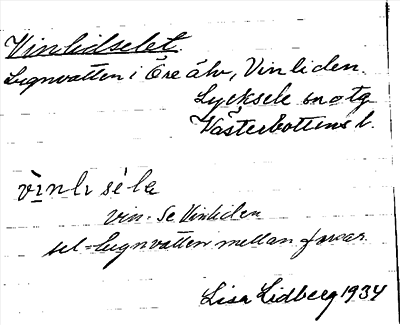 Vinlidselet.
Lugnvatten i Öre älv, Vinliden.
Lycksele sn o tg
Västerbottens l.
vìnlı sélɐ
vin- Se Vinliden
sel = lugnvatten mellan forsar.
Lisa Lidberg 1934